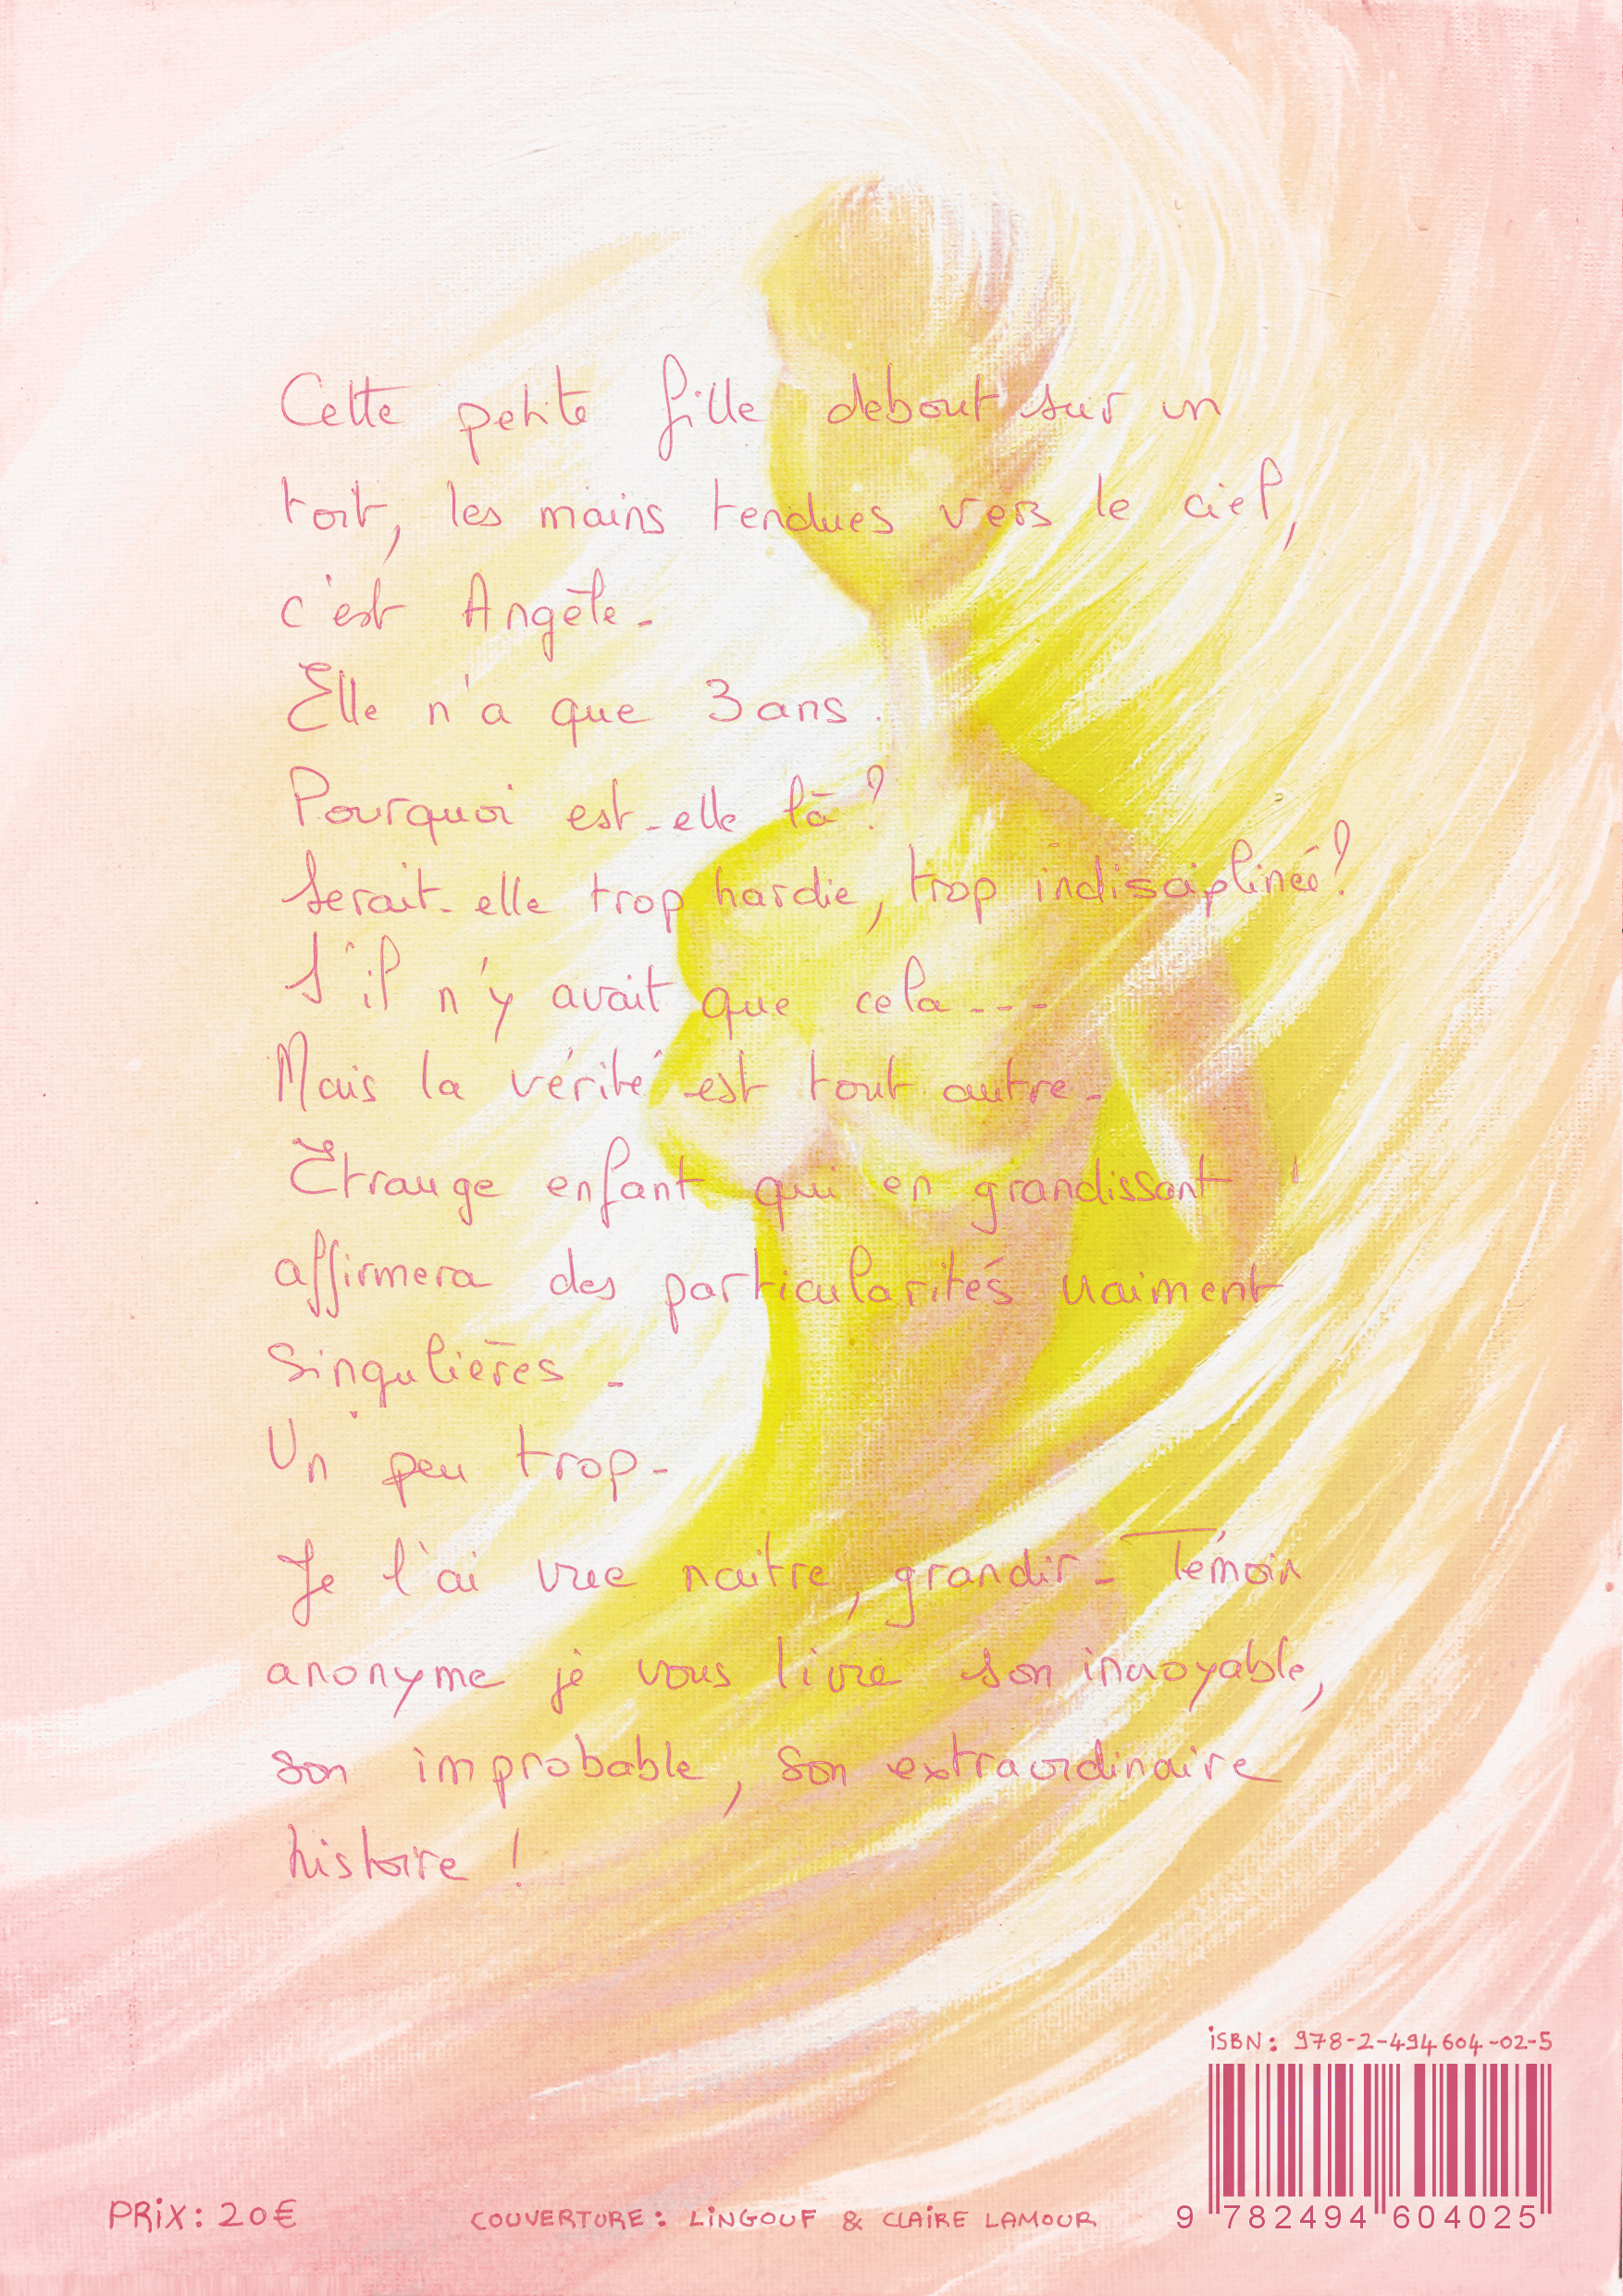 Cette petite fille debout sur un
toit, les mains tendues vers le ciel,
c'est Angèle.
Elle n'a que 3 ans.
Pourquoi est-elle là ?
Serait-elle trop hardie, trop indisciplinée ?
S'il n'y avait que cela...
Mais la vérité est tout autre.
Etrange enfant qui en grandissant
affirmera des particularités vraiment
singulières.
Un peu trop.
Je l'ai vue naitre, grandir. Témoin
anonyme je vous livre son incroyable,
son improbable, son extraordinaire
histoire !
ISBN: 978-2-494604-02-5
9 782494 604025
PRIX: 20€
COUVERTURE: LINGOUF & CLAIRE LAMOUR